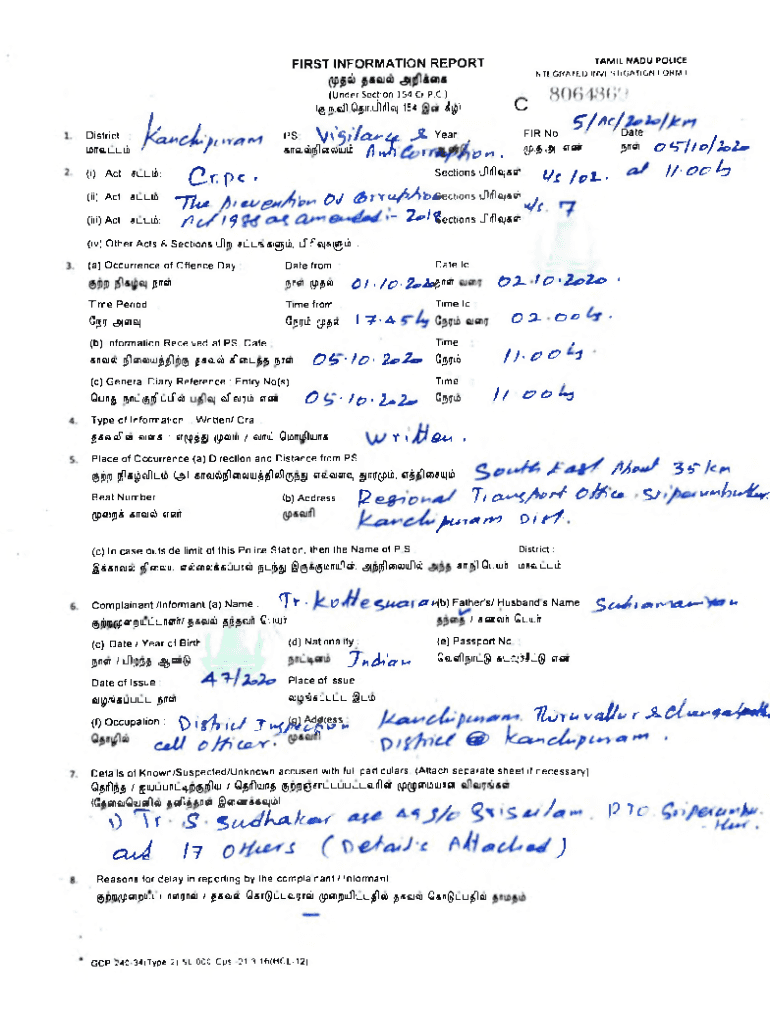 FIRST INFORMATION REPORT
TAMIL NADU POLICE
முதல் தகவல் அறிக்கை
INTEGRATED INVESTIGATION FORM I
(Under Section 154 Cr P.C.)
(கு.ந.வி.தொ.பிரிவு 154 இன் கீழ்)
C 8064869
1. District : Kanchipuram PS: Vigilance & Year FIR No 5/AC/2020/KM Date
மாவட்டம் காவல்நிலையம் Anti Corruption. ஆண்டு மு.த.அ எண் நாள் 05/10/2020
2. (i) Act சட்டம்: Cr.pc. Sections பிரிவுகள் U/s 102. at 11.00 hrs
(ii) Act சட்டம் The Prevention Of Corruption Sections பிரிவுகள் U/s. 7
(iii) Act சட்டம்: Act 1988 as amended :- 2018 Sections பிரிவுகள்
(iv) Other Acts & Sections பிற சட்டங்களும், பிரிவுகளும் :
3. (a) Occurrence of Offence Day : Date from : Date to :
குற்ற நிகழ்வு நாள் நாள் முதல் 01.10.2020 நாள் வரை 02.10.2020.
Time Period : Time from : Time to :
நேர அளவு நேரம் முதல் 17.45 hrs நேரம் வரை 02.00 hrs.
(b) Information Received at PS. Date : Time :
காவல் நிலையத்திற்கு தகவல் கிடைத்த நாள் 05.10.2020 நேரம் 11.00 hrs
(c) General Diary Reference : Entry No(s) Time :
பொது நாட்குறிப்பில் பதிவு விவரம் எண் 05.10.2020 நேரம் 11.00 hrs
4. Type of Information : Written/ Oral :
தகவலின் வகை : எழுத்து மூலம் / வாய் மொழியாக Written.
5. Place of Occurrence (a) Direction and Distance from PS
குற்ற நிகழ்விடம் (அ) காவல்நிலையத்திலிருந்து எவ்வளவு தூரமும், எத்திசையும் South East About 35 km
Beat Number (b) Address Regional Transport Office, Sriperumbudur,
முறைக் காவல் எண் முகவரி Kanchipuram Dist.
(c) In case outside limit of this Police Station, then the Name of P.S : District :
இக்காவல் நிலைய எல்லைக்கப்பால் நடந்து இருக்குமாயின், அந்நிலையில் அந்த கா.நி பெயர் மாவட்டம்
6. Complainant /Informant (a) Name : Tr. Kotteswaran (b) Father's/ Husband's Name Subramaniyan
குற்றமுறையீட்டாளர்/ தகவல் தந்தவர் பெயர் தந்தை / கணவர் பெயர்
(c) Date / Year of Birth (d) Nationality : (e) Passport No. :
நாள் / பிறந்த ஆண்டு நாட்டினம் Indian வெளிநாட்டு கடவுச்சீட்டு எண்
Date of Issue : 47/2020 Place of Issue
வழங்கப்பட்ட நாள் வழங்கப்பட்ட இடம்
(f) Occupation : District Inspection (g) Address : Kanchipuram, Thiruvallur & Chengalpattu
தொழில் cell officer. முகவரி District @ Kanchipuram.
7. Details of Known/Suspected/Unknown accused with full particulars. (Attach separate sheet if necessary)
தெரிந்த / ஐயப்பாட்டிற்குறிய / தெரியாத குற்றஞ்சாட்டப்பட்டவரின் முழுமையான விவரங்கள்
(தேவையெனில் தனித்தாள் இணைக்கவும்)
1) Tr. S. Sudhakar age 49 S/o Srisailam, RTO Sriperumbu-
dur.
and 17 Others (Details Attached)
8. Reasons for delay in reporting by the complainant / Informant
குற்றமுறையீட்டாளரால் / தகவல் கொடுட்டவரால் முறையிட்டதில் தகவல் கொடுப்பதில் தாமதம்
—